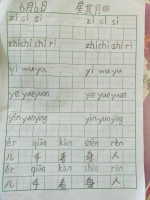 6月6日 星期四
zi ci si zi ci si
zhi chi shi ri zhi chi shi ri
yi wu yu yi wu yu
ye yue yuan ye yue yuan
yin yun ying yin yun ying
ér qiān kàn shēn rén
儿 千 看 身 人
ér qiān kàn shēn rén
儿 千 看 身 人